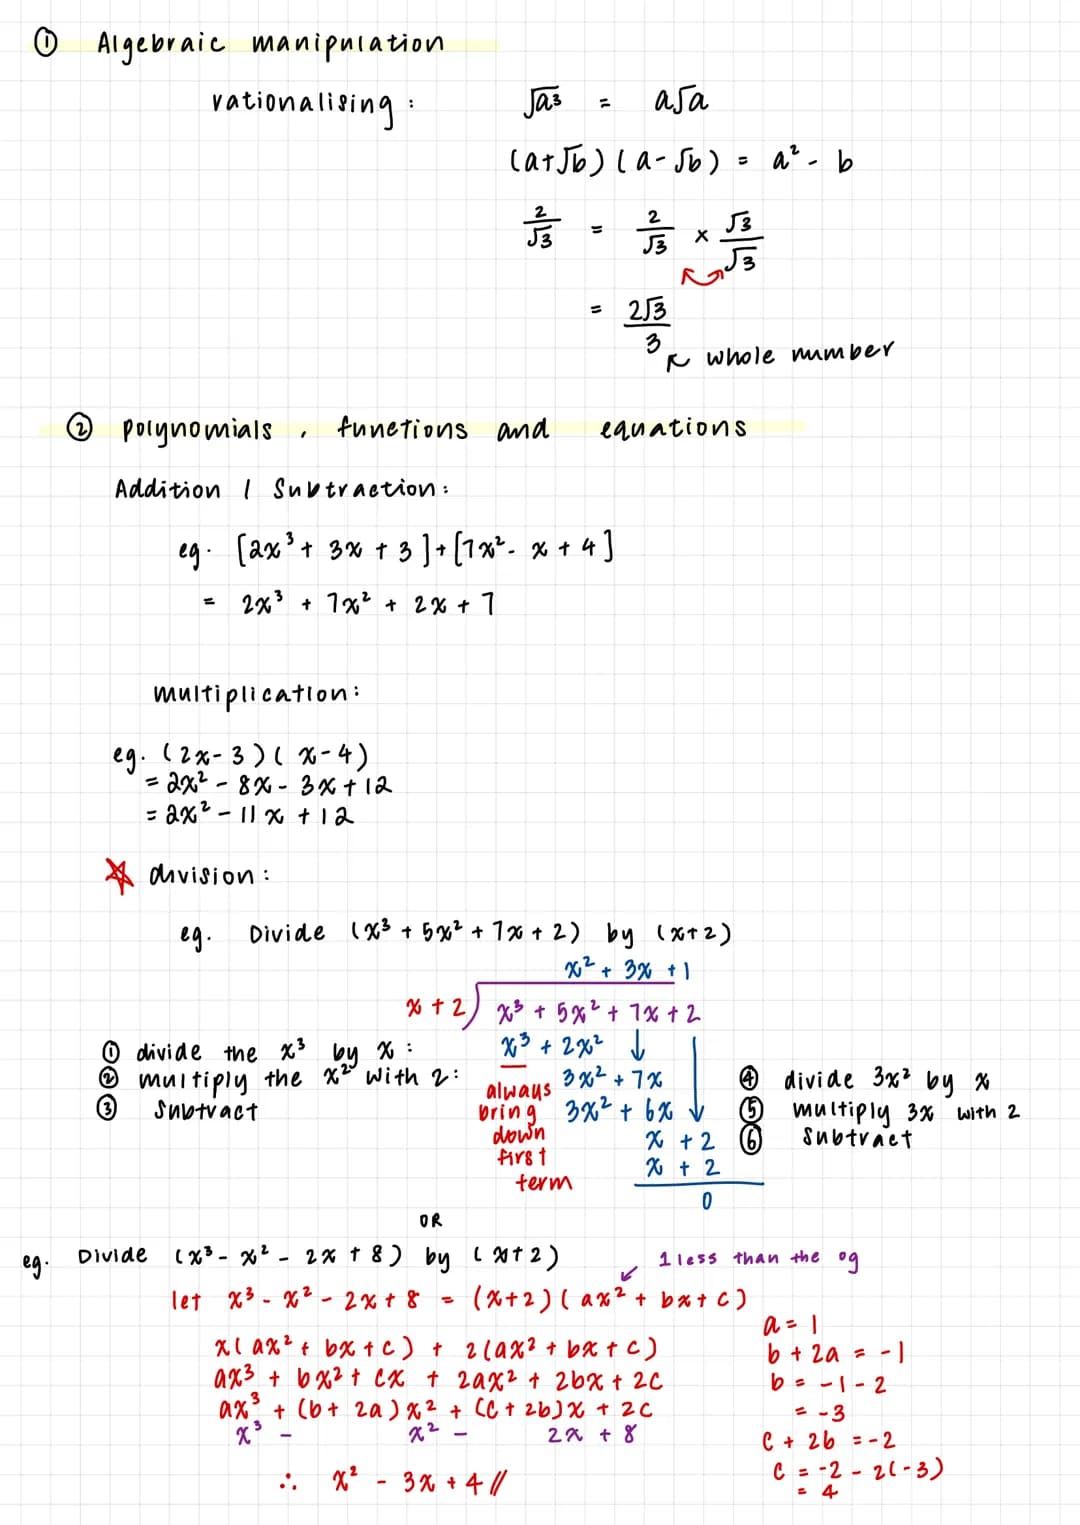 ① Algebraic manipulation
rationalising : √a³ = a√a
(a+√b)(a-√b) = a² - b
2/√3 = 2/√3 × √3/√3
= 2√3/3
↖ whole number
② polynomials , functions and equations
Addition / Subtraction:
eg. [2x³ + 3x + 3] + [7x² - x + 4]
= 2x³ + 7x² + 2x + 7
multiplication:
eg. (2x-3)(x-4)
= 2x² - 8x - 3x + 12
= 2x² - 11x + 12
☆ division :
eg. Divide (x³ + 5x² + 7x + 2) by (x+2)
x² + 3x + 1
x + 2) x³ + 5x² + 7x + 2
x³ + 2x² ↓
① divide the x³ by x :
② multiply the x² with 2:
③ Subtract
always bring down first term
3x² + 7x
3x² + 6x ↓
x + 2
x + 2
0
④ divide 3x² by x
⑤ multiply 3x with 2
⑥ Subtract
OR
eg. Divide (x³ - x² - 2x + 8) by (x+2)
1 less than the og
let x³ - x² - 2x + 8 = (x+2)(ax² + bx + c)
x(ax² + bx + c) + 2(ax² + bx + c)
ax³ + bx² + cx + 2ax² + 2bx + 2c
ax³ + (b + 2a)x² + (c + 2b)x + 2c
x³ - x² - 2x + 8
∴ x² - 3x + 4 //
a = 1
b + 2a = -1
b = -1 - 2
= -3
c + 2b = -2
c = -2 - 2(-3)
= 4